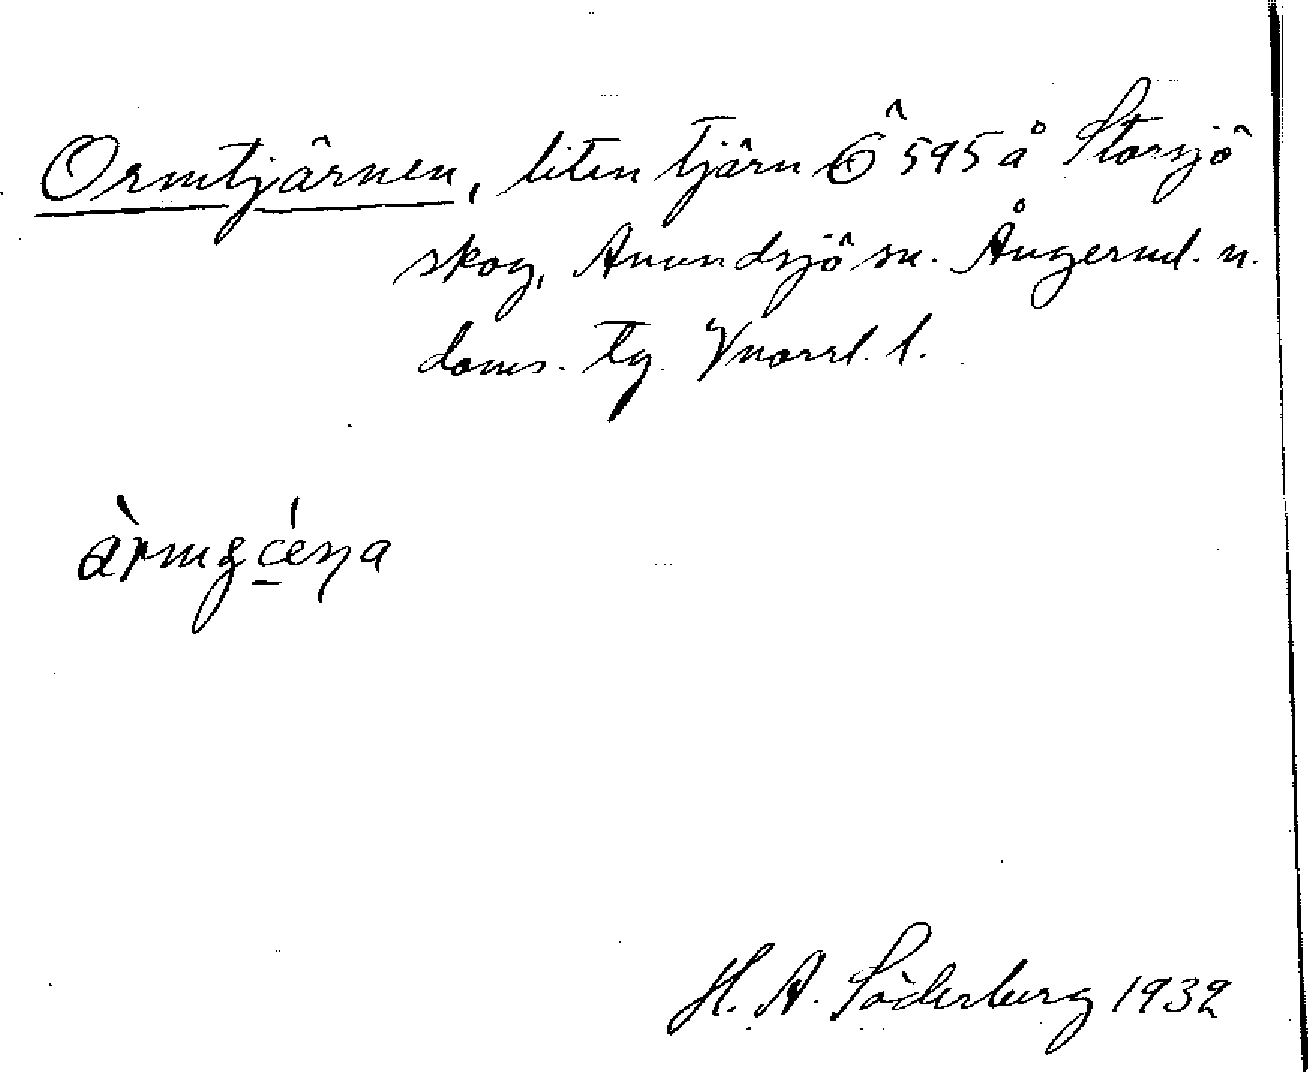 Ormtjärnen, liten tjärn Ö 595 å Storsjö
skog, Anundsjö sn. Ångerml. n.
doms. tg. Vnorrl. l.
H. A. Söderberg 1932